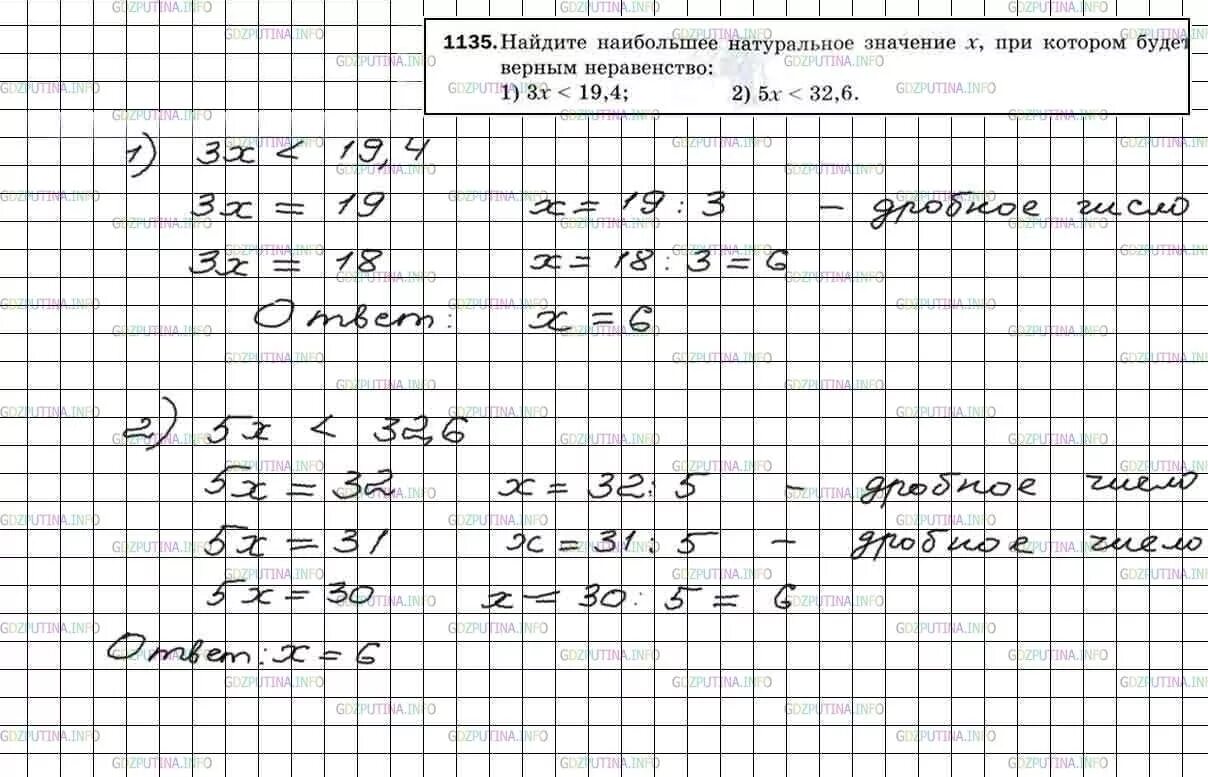 1135. Найдите наибольшее натуральное значение x, при котором будет
верным неравенство:
1) 3x < 19,4; 2) 5x < 32,6.
1) 3x < 19,4
3x = 19 x = 19 : 3 – дробное число
3x = 18 x = 18 : 3 = 6
Ответ: x = 6
2) 5x < 32,6
5x = 32 x = 32 : 5 – дробное число
5x = 31 x = 31 : 5 – дробное число
5x = 30 x = 30 : 5 = 6
Ответ: x = 6
GDZPUTINA.INFO